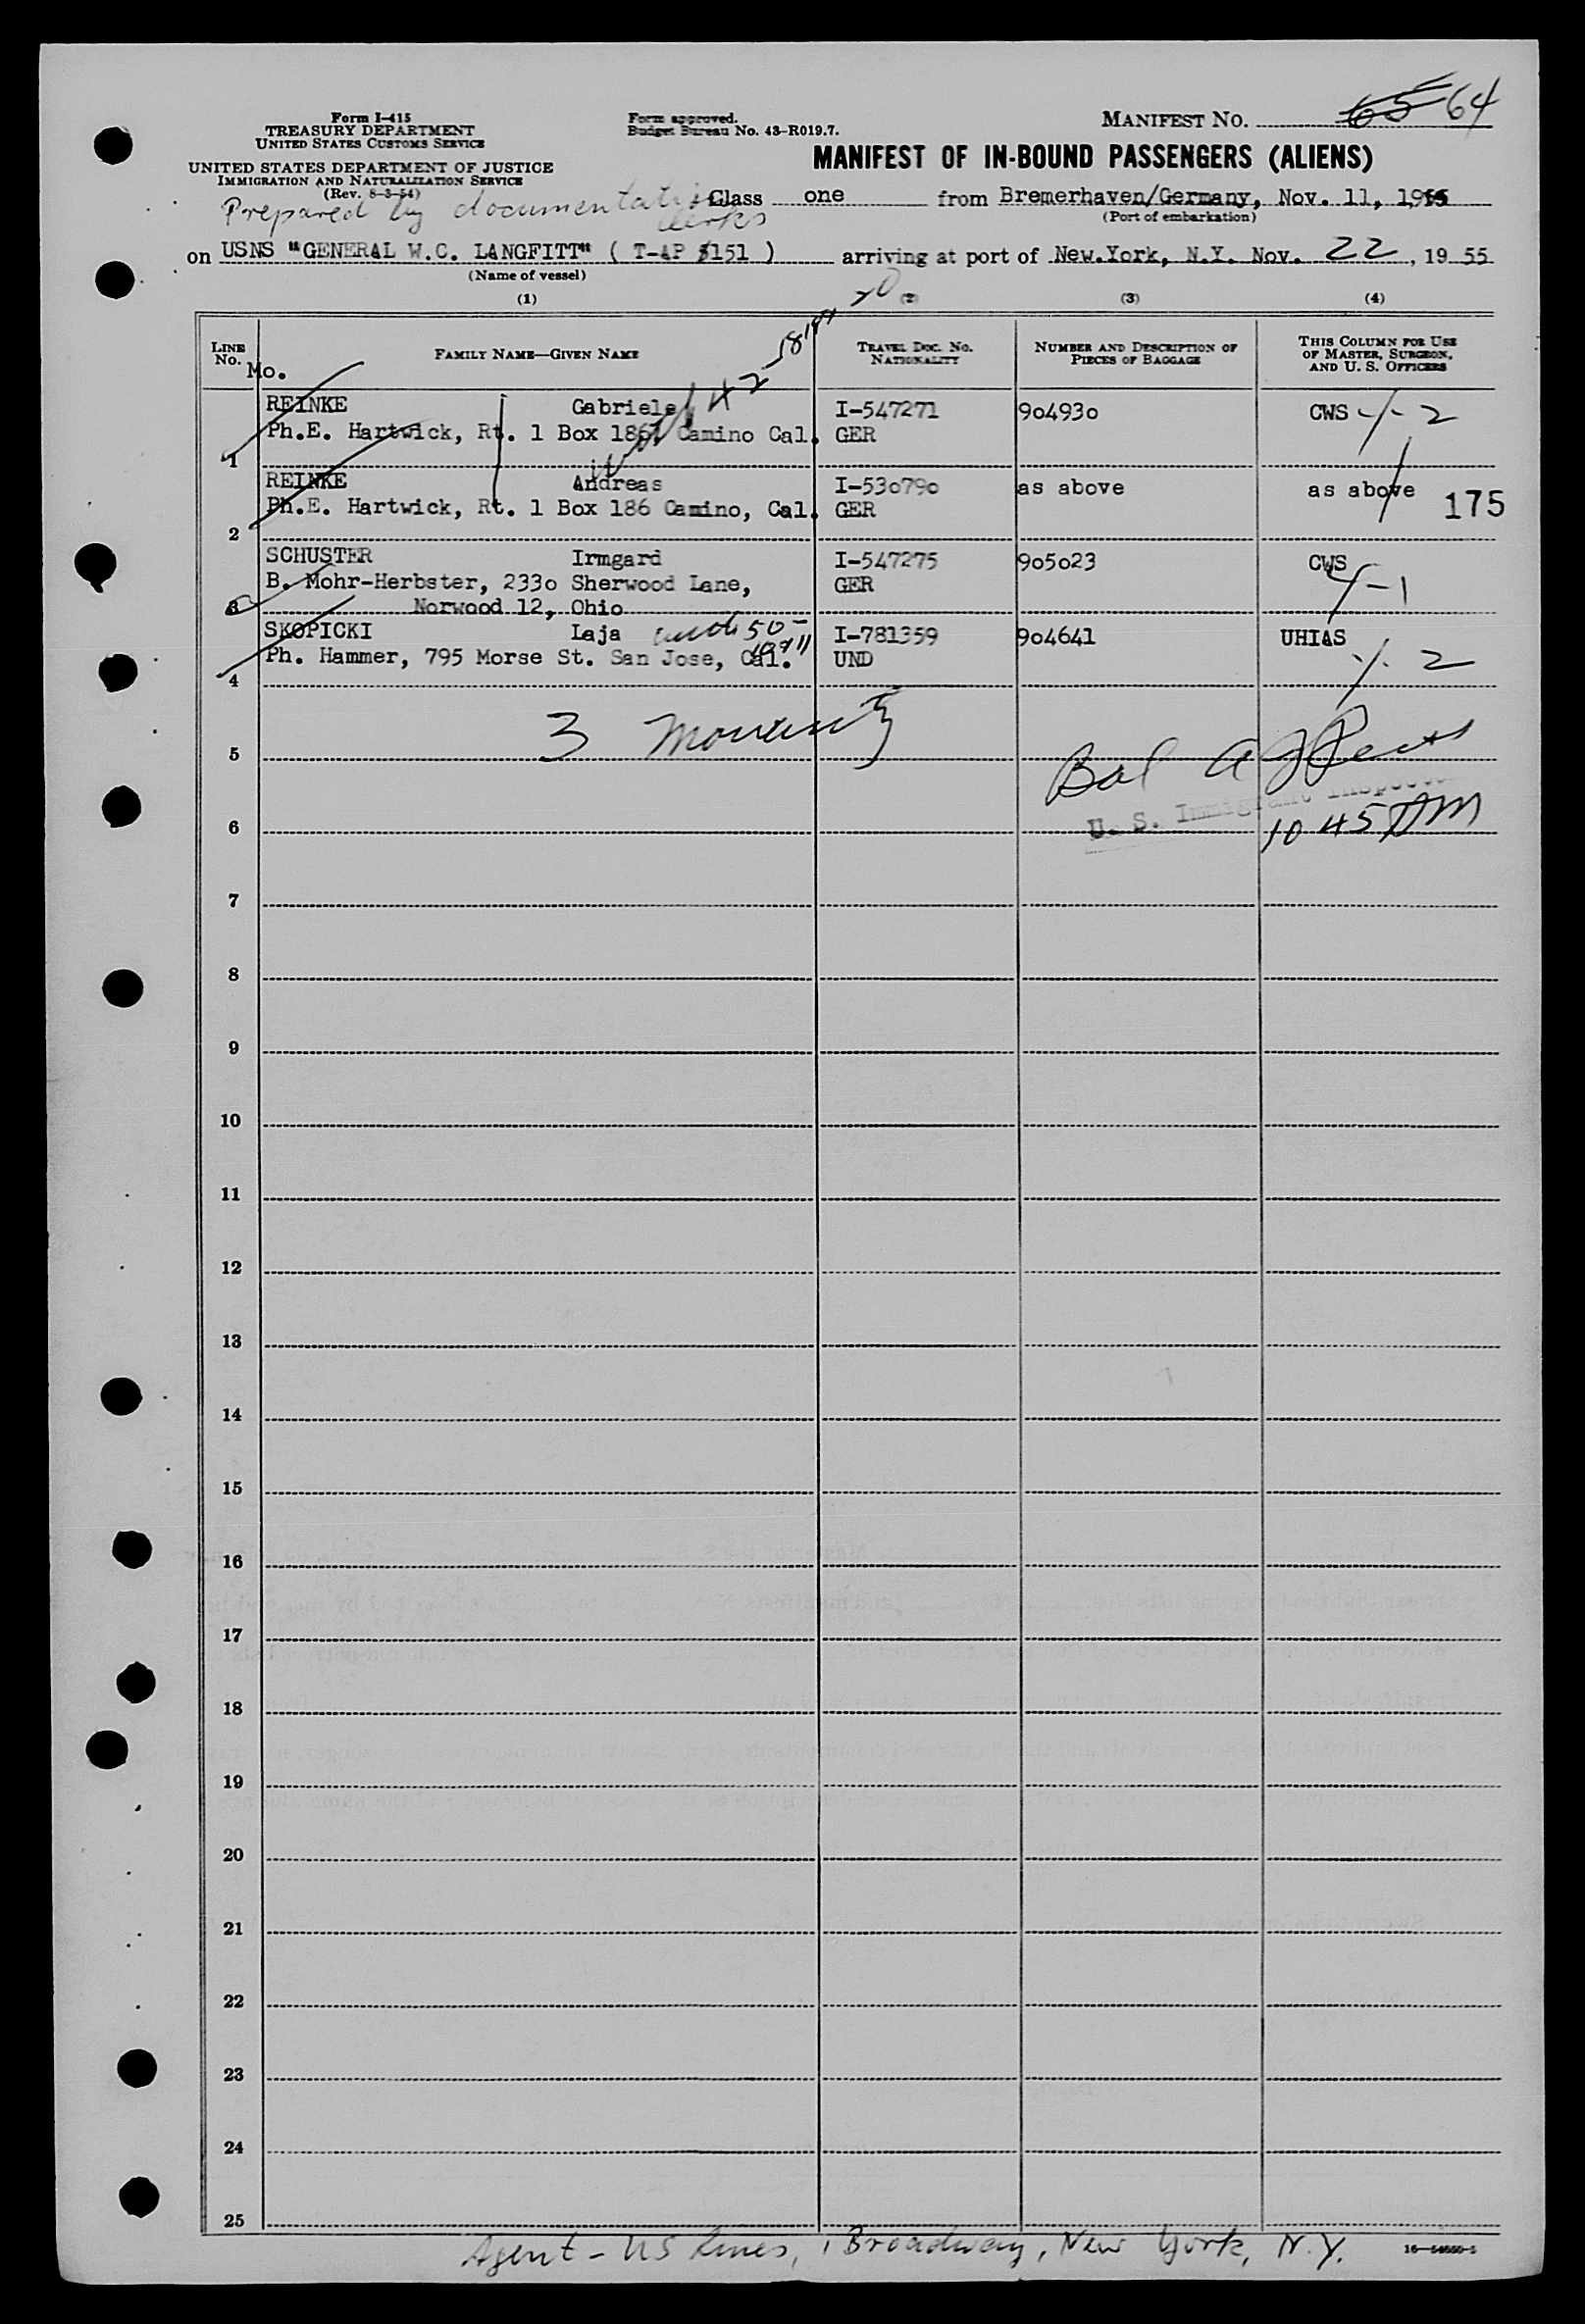 Form I-415
TREASURY DEPARTMENT
UNITED STATES CUSTOMS SERVICE
UNITED STATES DEPARTMENT OF JUSTICE
IMMIGRATION AND NATURALIZATION SERVICE
(Rev. 8-3-54)
Form approved.
Budget Bureau No. 43-R019.7.
MANIFEST NO. 65 64
MANIFEST OF IN-BOUND PASSENGERS (ALIENS)
Prepared by documentation clerks
Class one from Bremerhaven/Germany, Nov. 11, 1955
(Port of embarkation)
on USNS "GENERAL W.C. LANGFITT" ( T-AP 151 ) arriving at port of New.York, N.Y. Nov. 22, 19 55
(Name of vessel)
(1) (2) (3) (4)
LINE No. FAMILY NAME—GIVEN NAME TRAVEL DOC. NO. NATIONALITY NUMBER AND DESCRIPTION OF PIECES OF BAGGAGE THIS COLUMN FOR USE OF MASTER, SURGEON, AND U. S. OFFICERS
Mo.
REINKE Gabriele I-547271 9o493o CWS -/- 2
Ph.E. Hartwick, Rt. 1 Box 186 Camino Cal. GER
1
REINKE Andreas I-53o79o as above as above 175
Ph.E. Hartwick, Rt. 1 Box 186 Camino, Cal. GER
2
SCHUSTER Irmgard I-547275 9o5o23 CWS
B. Mohr-Herbster, 233o Sherwood Lane, GER -1
3 Norwood 12, Ohio
SKOPICKI Laja 50- I-781359 9o4641 UHIAS
Ph. Hammer, 795 Morse St. San Jose, Cal. UND 2
4
3
5
6 U. S. Immigrant Inspector
10 45 AM
7
8
9
10
11
12
13
14
15
16
17
18
19
20
21
22
23
24
25
Agent - US Lines, 1 Broadway, New York, N.Y.